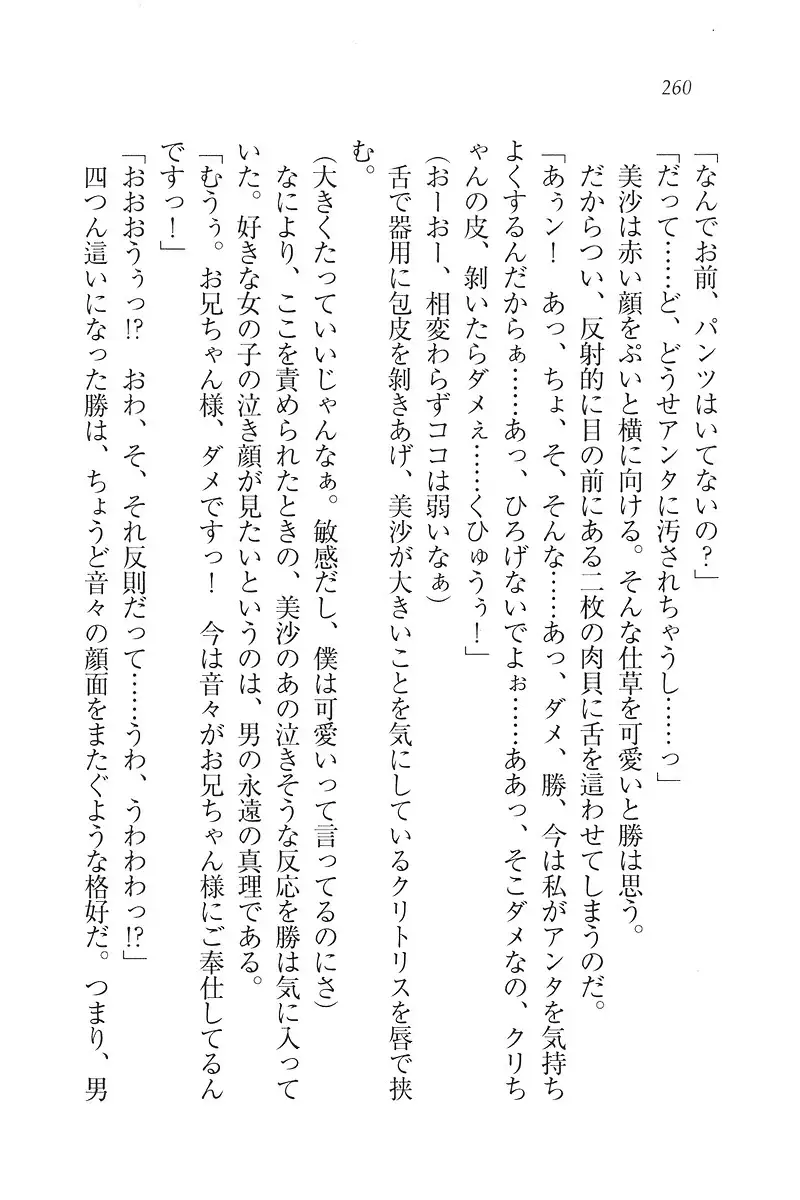 260
「なんでお前、パンツはいてないの？」
「だって……ど、どうせアンタに汚されちゃうし……っ」
美沙は赤い顔をぷいと横に向ける。そんな仕草を可愛いと勝は思う。
だからつい、反射的に目の前にある二枚の肉貝に舌を這わせてしまうのだ。
「あぅン！　あっ、ちょ、そ、そんな……あっ、ダメ、勝、今は私がアンタを気持ち
よくするんだからぁ……あっ、ひろげないでよぉ……ああっ、そこダメなの、クリち
ゃんの皮、剝いたらダメぇ……くひゅうぅ！」
（おーおー、相変わらずココは弱いなぁ）
舌で器用に包皮を剝きあげ、美沙が大きいことを気にしているクリトリスを唇で挟
む。
（大きくたっていいじゃんなぁ。敏感だし、僕は可愛いって言ってるのにさ）
なにより、ここを責められたときの、美沙のあの泣きそうな反応を勝は気に入って
いた。好きな女の子の泣き顔が見たいというのは、男の永遠の真理である。
「むうぅ。お兄ちゃん様、ダメですっ！　今は音々がお兄ちゃん様にご奉仕してるん
ですっ！」
「おおおうぅっ!?　おわ、そ、それ反則だって……うわ、うわわわっ!?」
四つん這いになった勝は、ちょうど音々の顔面をまたぐような格好だ。つまり、男